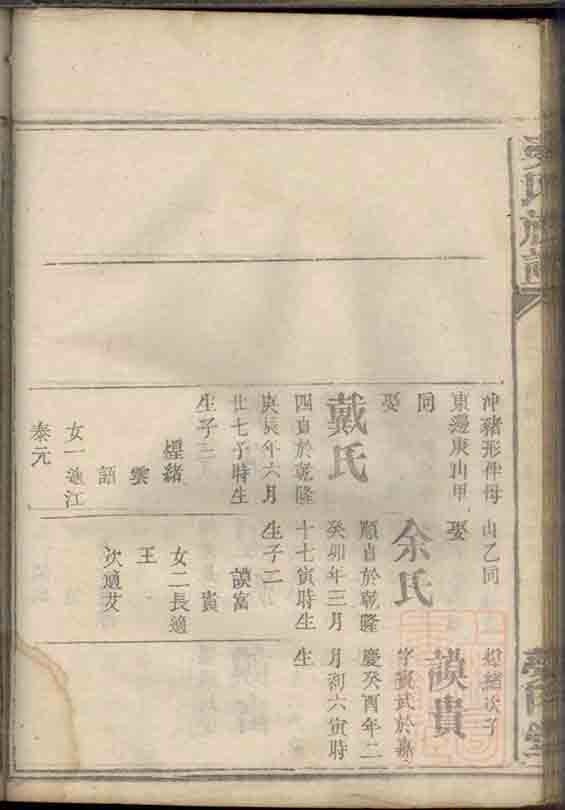 氏族譜
冲豬形伴母
東邊庚山甲
同
娶
戴氏
四貞於乾隆
庚辰年六月
廿七子時生
生子二
煋緒
雲
語
女一適江
泰元
山乙同
娶
余氏
順貞於乾隆
癸卯年三月
十七寅時生
生子二
謨富
貴
女二長適
王
次適艾
緒次子
謨貴
字 武於嘉
慶癸酉年二
月初六寅時
生